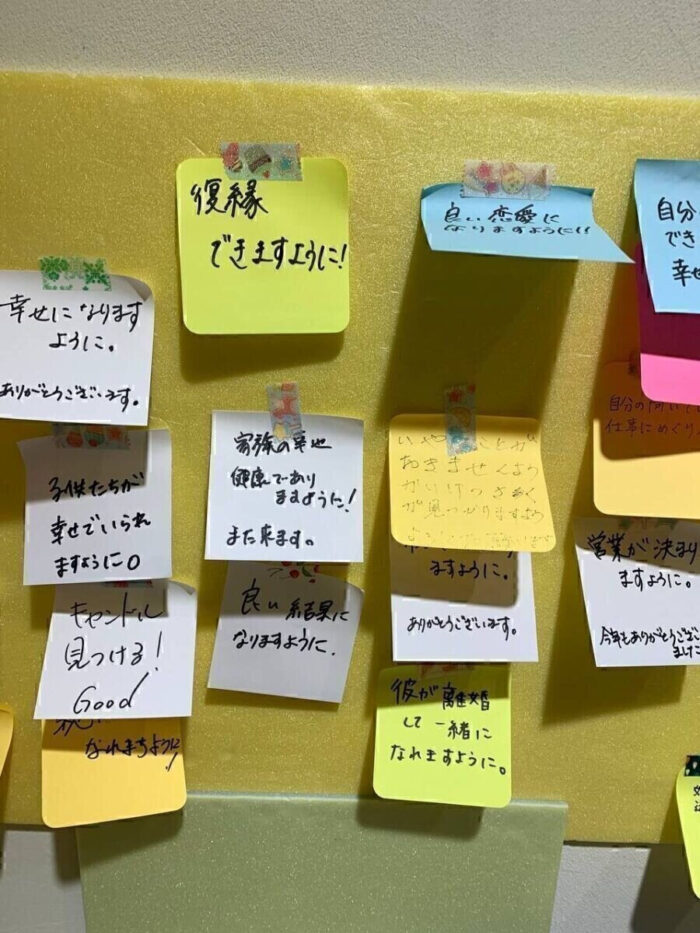 復縁
できますように!
良い恋愛に
なりますように!!
自分
でき
幸せ
幸せになります
ように。
ありがとうございます。
自分の
仕事にめぐり
家族の幸せ
健康であり
ますように!
また来ます。
いやなことが
おきませんよう
が見つかりますよう
子供たちが
幸せでいられ
ますように○
営業が決まり
ますように。
今年もありがとうござい
ました
ますように。
ありがとうございます。
良い結果に
なりますように.
キャンドル
見つける!
Good
なれまちように!
彼が離婚
して一緒に
なれますように。